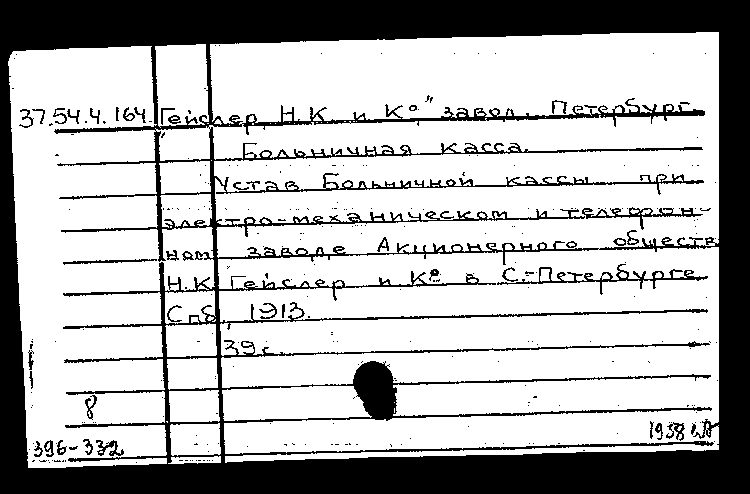 37.54.4.164. "Гейслер, Н.К. и Ко", завод. Петербург.
Больничная касса.
Устав Больничной кассы при
электро-механическом и телефон-
ном заводе Акционерного обществ.
Н.К. Гейслер и Ко в С.-Петербурге.
Спб., 1913.
39 с.
8
396-332
1958